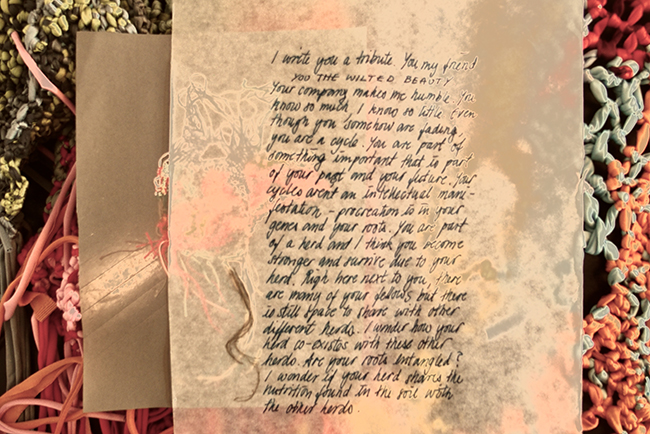 I write you a tribute. You my friend
YOU THE WILTED BEAUTY
Your company makes me humble. You
know so much, I know so little. Even
though you somehow are fading,
you are a cycle. You are part of
something important that is part
of your past and your future. Your
cycles arent an intellectual mani-
festation - procreation is in your
genes and your roots. You are part
of a herd and I think you become
stronger and survive due to your
herd. Righ here next to you, there
are many of your fellows but there
is still space to share with other
different herds. I wonder how your
herd co-exists with these other
herds. Are your roots entangled?
I wonder if your herd shares the
nutrition found in the soil with
the other herds.